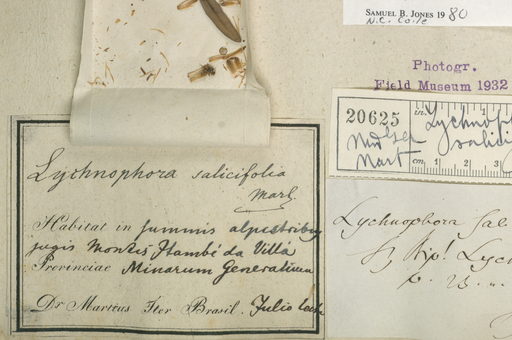 SAMUEL B. JONES 1980
N.C. Coile
Photogr.
Field Museum 1932
20625
Lychnoph
salici
Mart
cm 1 2 3
Lychnophora salicifolia
Mart.
Habitat in summis alpestribus
jugis Montis Itambé da Villa
Provinciae Minarum Generalium
Dr Martius Iter Brasil. Julio
Lychnophora Sali
Lych